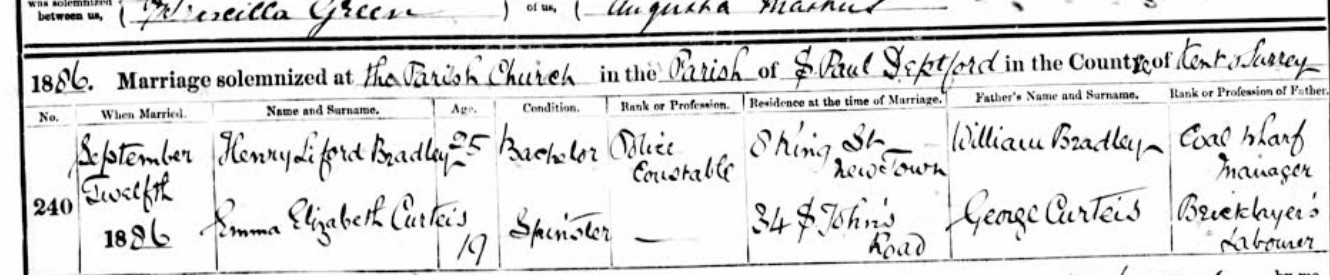 was solemnized
between us,
Priscilla Green
of us,
Augusta
1886. Marriage solemnized at the Parish Church in the Parish of St Paul Deptford in the Counties of Kent & Surrey
No. When Married. Name and Surname. Age. Condition. Rank or Profession. Residence at the time of Marriage. Father's Name and Surname. Rank or Profession of Father.
September Henry Liford Bradley 25 Bachelor Police 8 King St William Bradley Coal Wharf
Twelfth Constable New Town Manager
240 Emma Elizabeth Curteis Spinster — 34 St John's George Curteis Bricklayer's
1886 19 Road Labourer